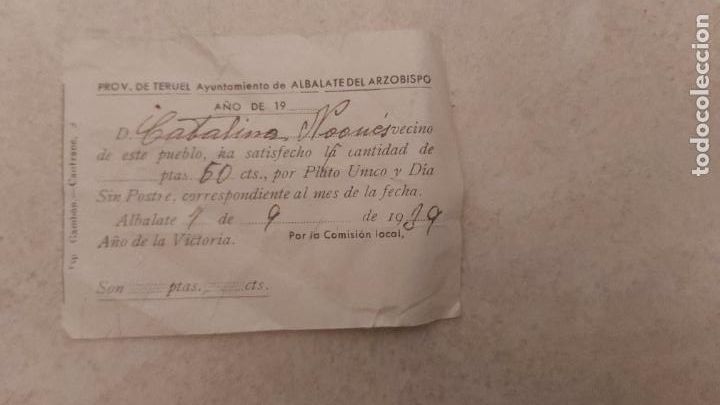 PROV. DE TERUEL Ayuntamiento de ALBALATE DEL ARZOBISPO
AÑO DE 19
D. Catalina Nogués vecino
de este pueblo, ha satisfecho la cantidad de
ptas. 60 cts., por Plato Unico y Día
Sin Postre, correspondiente al mes de la fecha.
Albalate 7 de 9 de 1939
Año de la Victoria. Por la Comisión local,
Son ptas. cts.
todocoleccion